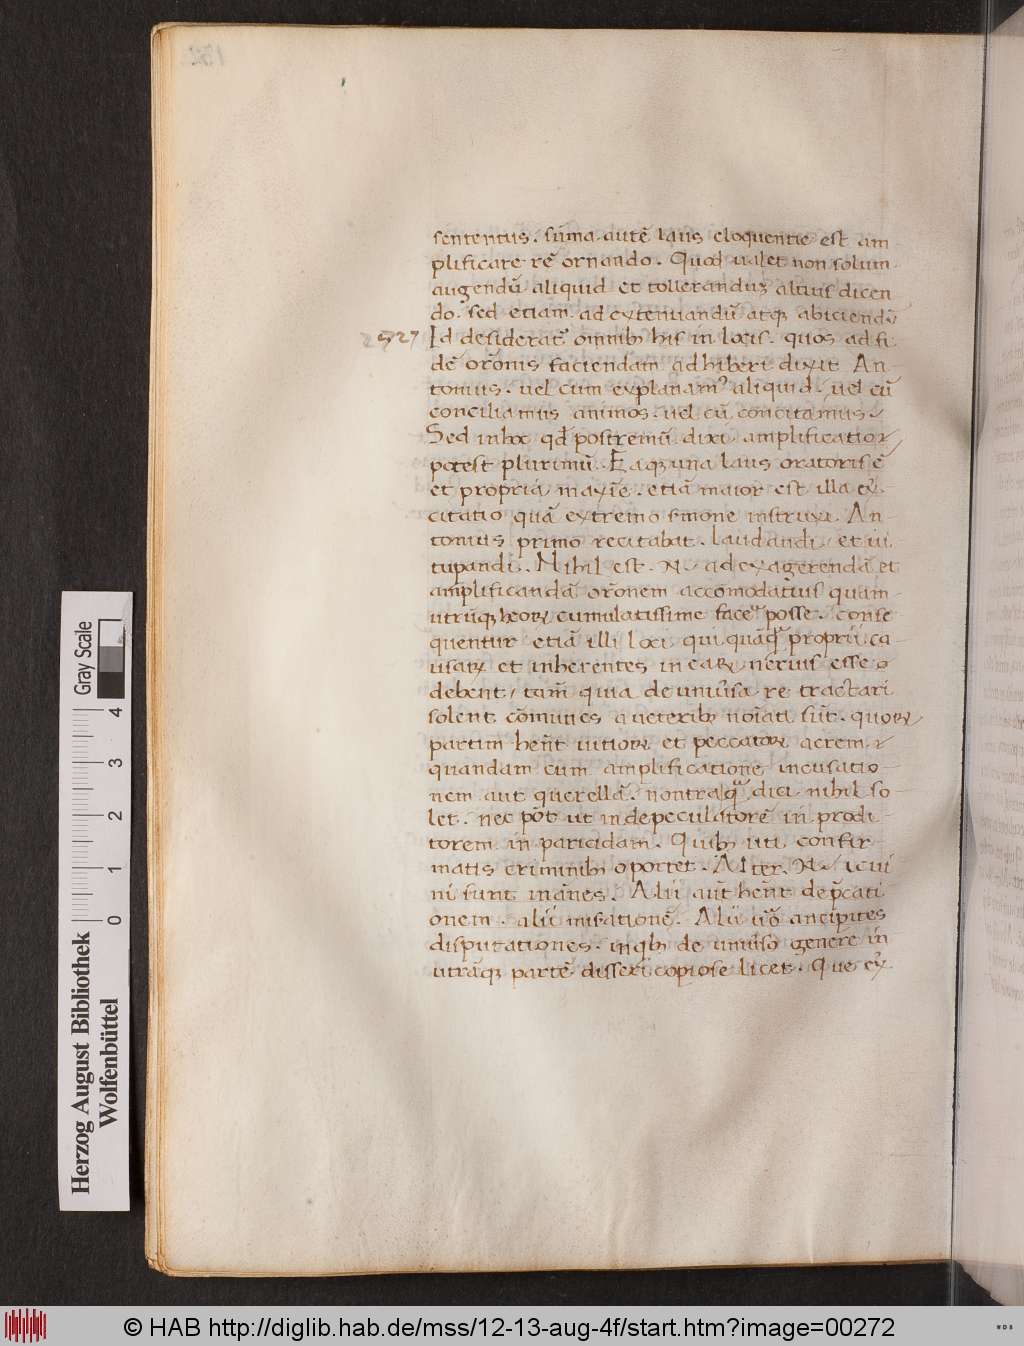 sententiis. sūma autē laus eloquentie est am
plificare rē ornando. Quod ualet non solum
augendū aliquid et tollerandūꝫ altius dicen
do. sed etiam ad extenuandū atqꝫ abiciendū
527 Id desiderat᷑ omnibꝫ his in locis. quos ad fi
dē orōnis faciendam adhiberi dixit An
tonius. uel cum explanam᷒ aliquid. uel cū
conciliamus animos. uel cū concitamus.
Sed in hoc qd̄ postremū dixi amplificatio
potest plurimū. Eaqꝫ una laus oratoris ē
et propria maxīe. etiā maior est illa ex
citatio quā extremo s̄mone instruxi. An
tonius primo recitabat. laudandi et ui
tupandi. Nihil est .N. ad exagerendā et
amplificandā orōnem accōmodatius quam
utrūqꝫ heoꝝ cumulatissime face᷑ posse. Conse
quentur etiā illi loci qui quāq̄ proprii ca
usaꝝ et inherentes in eaꝝ neruis esse
debent, tam̄ quia de uniu̾sa re tractari
solent cōmunes a ueteribꝫ noīati sūt. quoꝝ
partim hēnt uitioꝝ et peccatoꝝ acrem
quandam cum amplificatione incusatio
nem aut querellā. contra q̄ dici nihil so
let. nec pōt ut in depeculatorē in prodi
torem in paricidam. Quibꝫ uti confir
matis criminibꝫ oportet. Alter .N. ieiui
ni sunt inānes. Alii aūt hēnt dep̄cati
onem. alii mis̄ationē. Alii u̾o ancipites
disputationes. in qibꝫ de uniu̾so genere in
utrāqꝫ partē disseri copiose licet. Que ex
Gray Scale
0 1 2 3 4
Herzog August Bibliothek
Wolfenbüttel
© HAB http://diglib.hab.de/mss/12-13-aug-4f/start.htm?image=00272